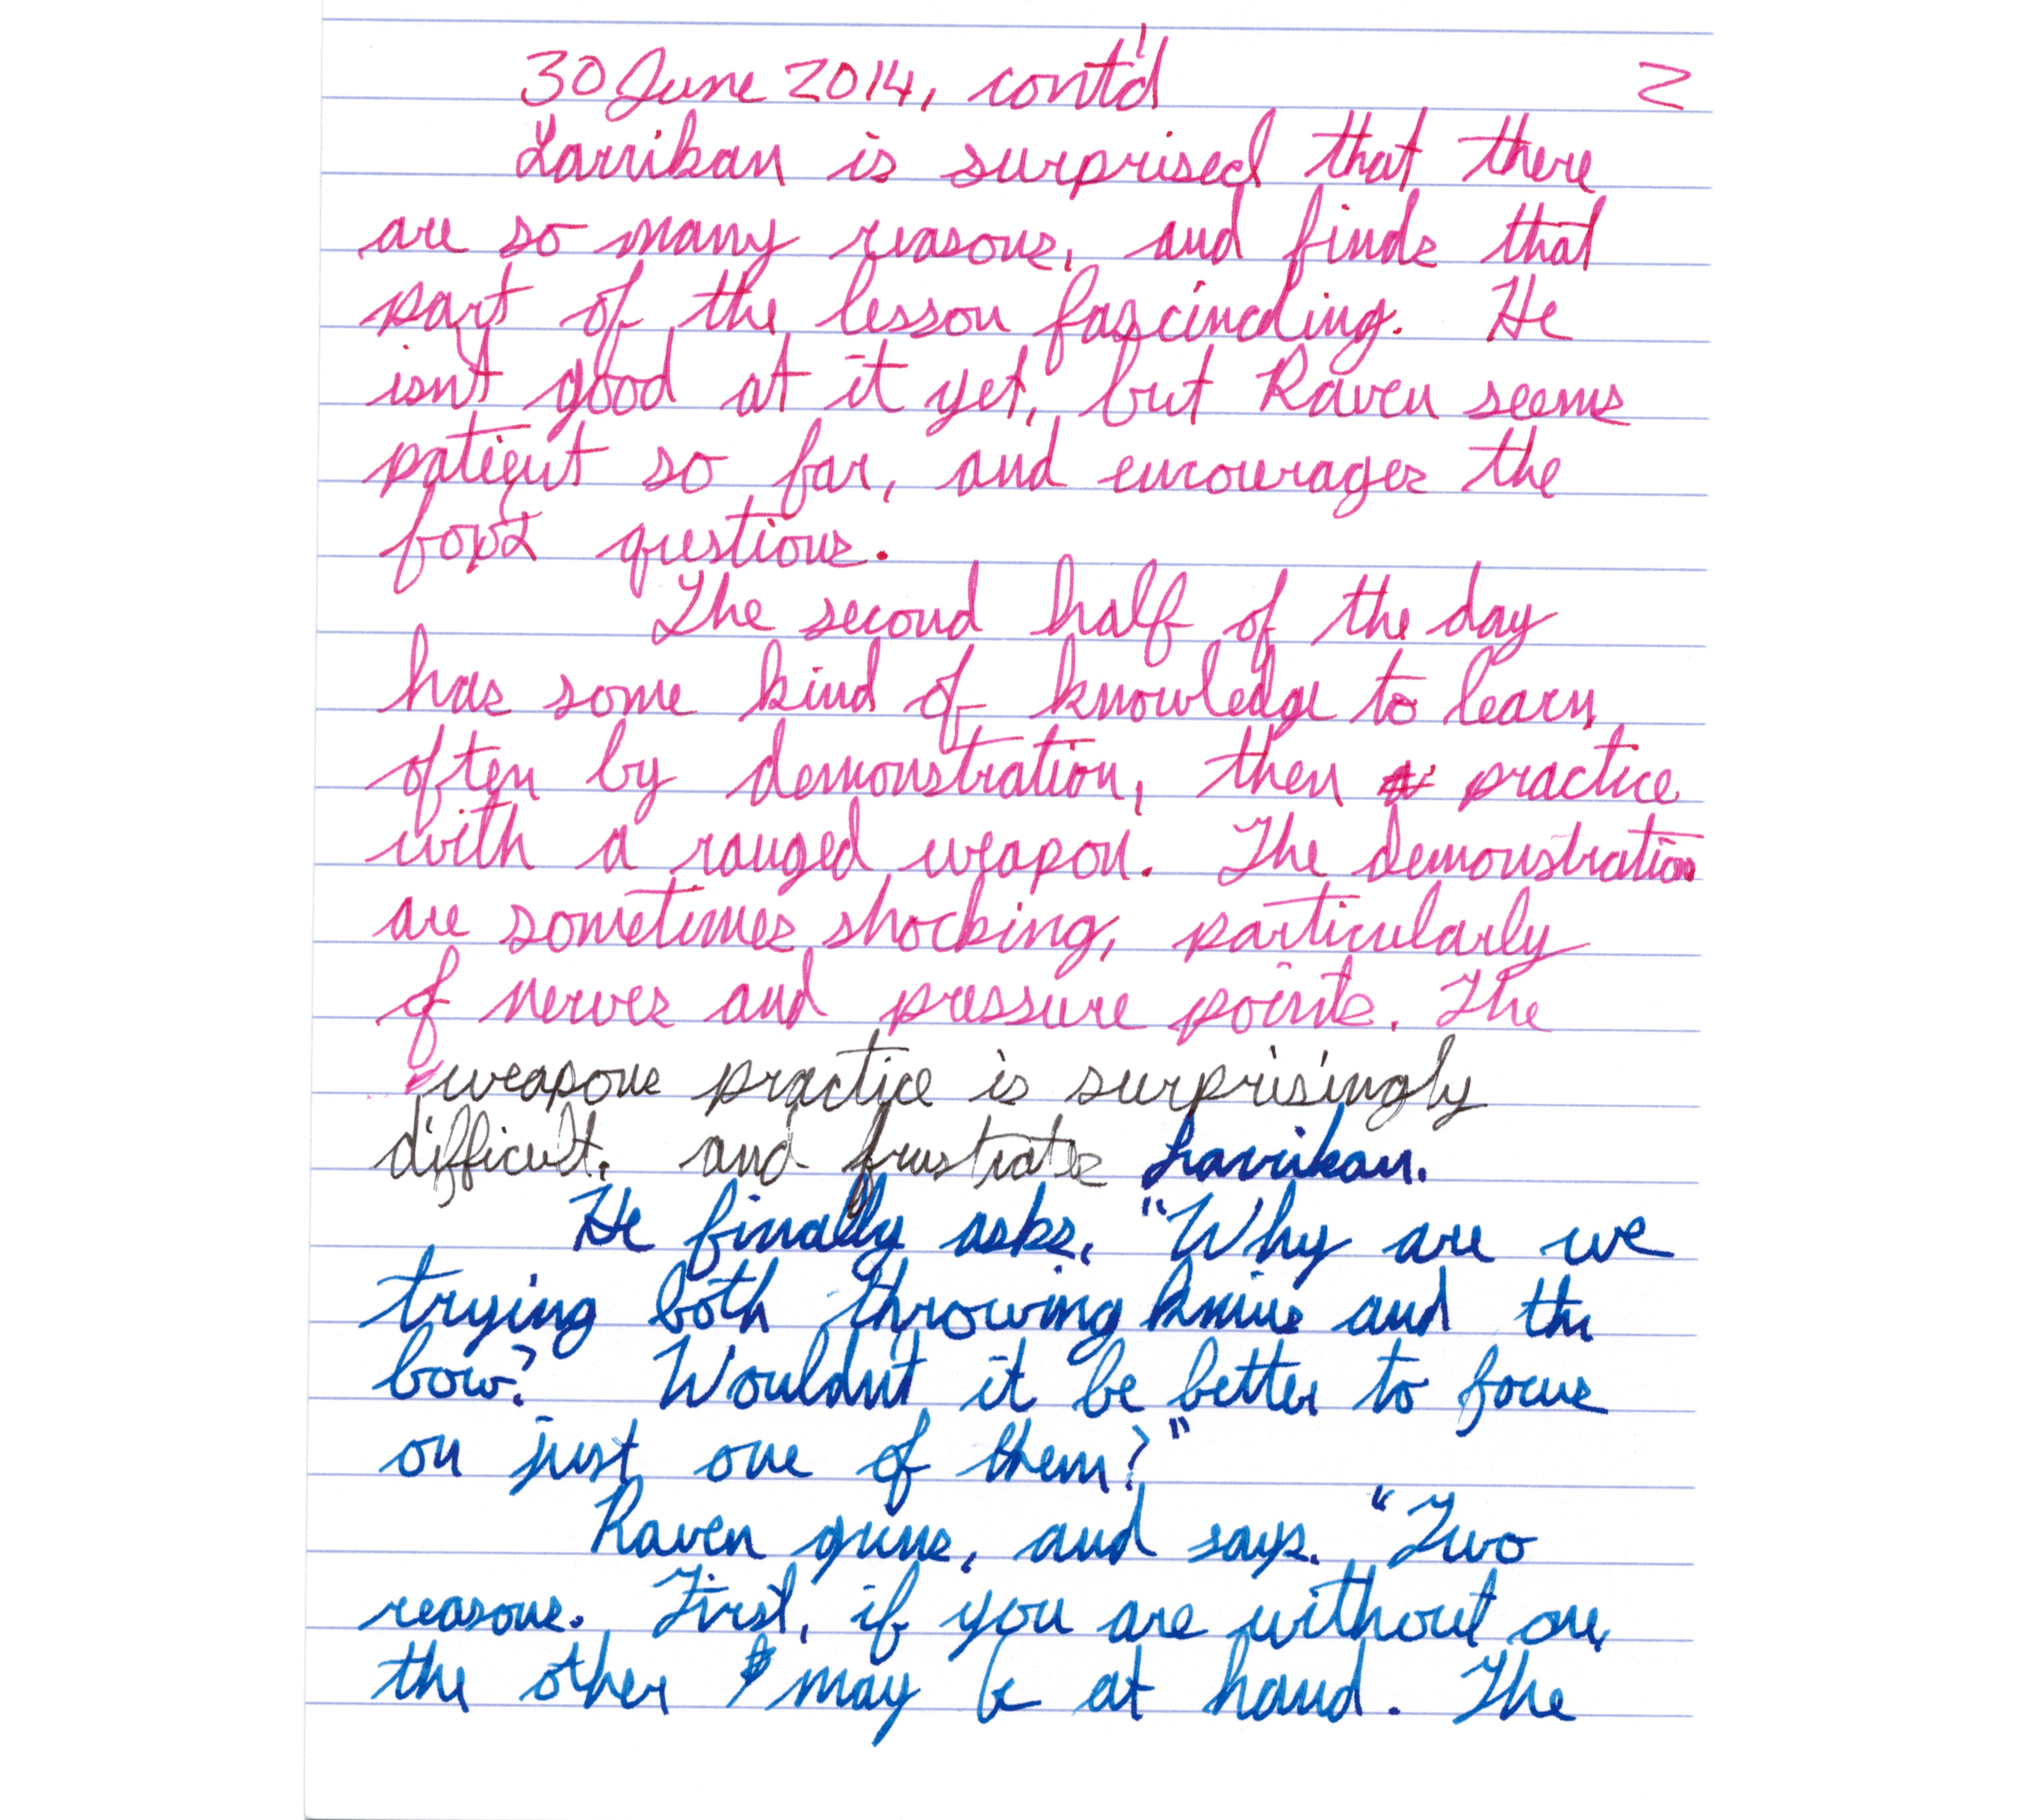 30 June 2014, cont'd 2
Larrikan is surprised that there
are so many reasons, and finds that
part of the lesson fascinating. He
isn't good at it yet, but Raven seems
patient so far, and encourages the
questions.
The second half of the day
has some kind of knowledge to learn,
often by demonstration, then practice
with a ranged weapon. The demonstration
are sometimes shocking, particularly
of nerves and pressure points. The
weapons practice is surprisingly
difficult, and frustrates Larrikan.
He finally asks, "Why are we
trying both throwing knives and the
bow? Wouldn't it be better to focus
on just one of them?"
Raven grins, and says, "Two
reasons. First, if you are without one,
the other may be at hand. The